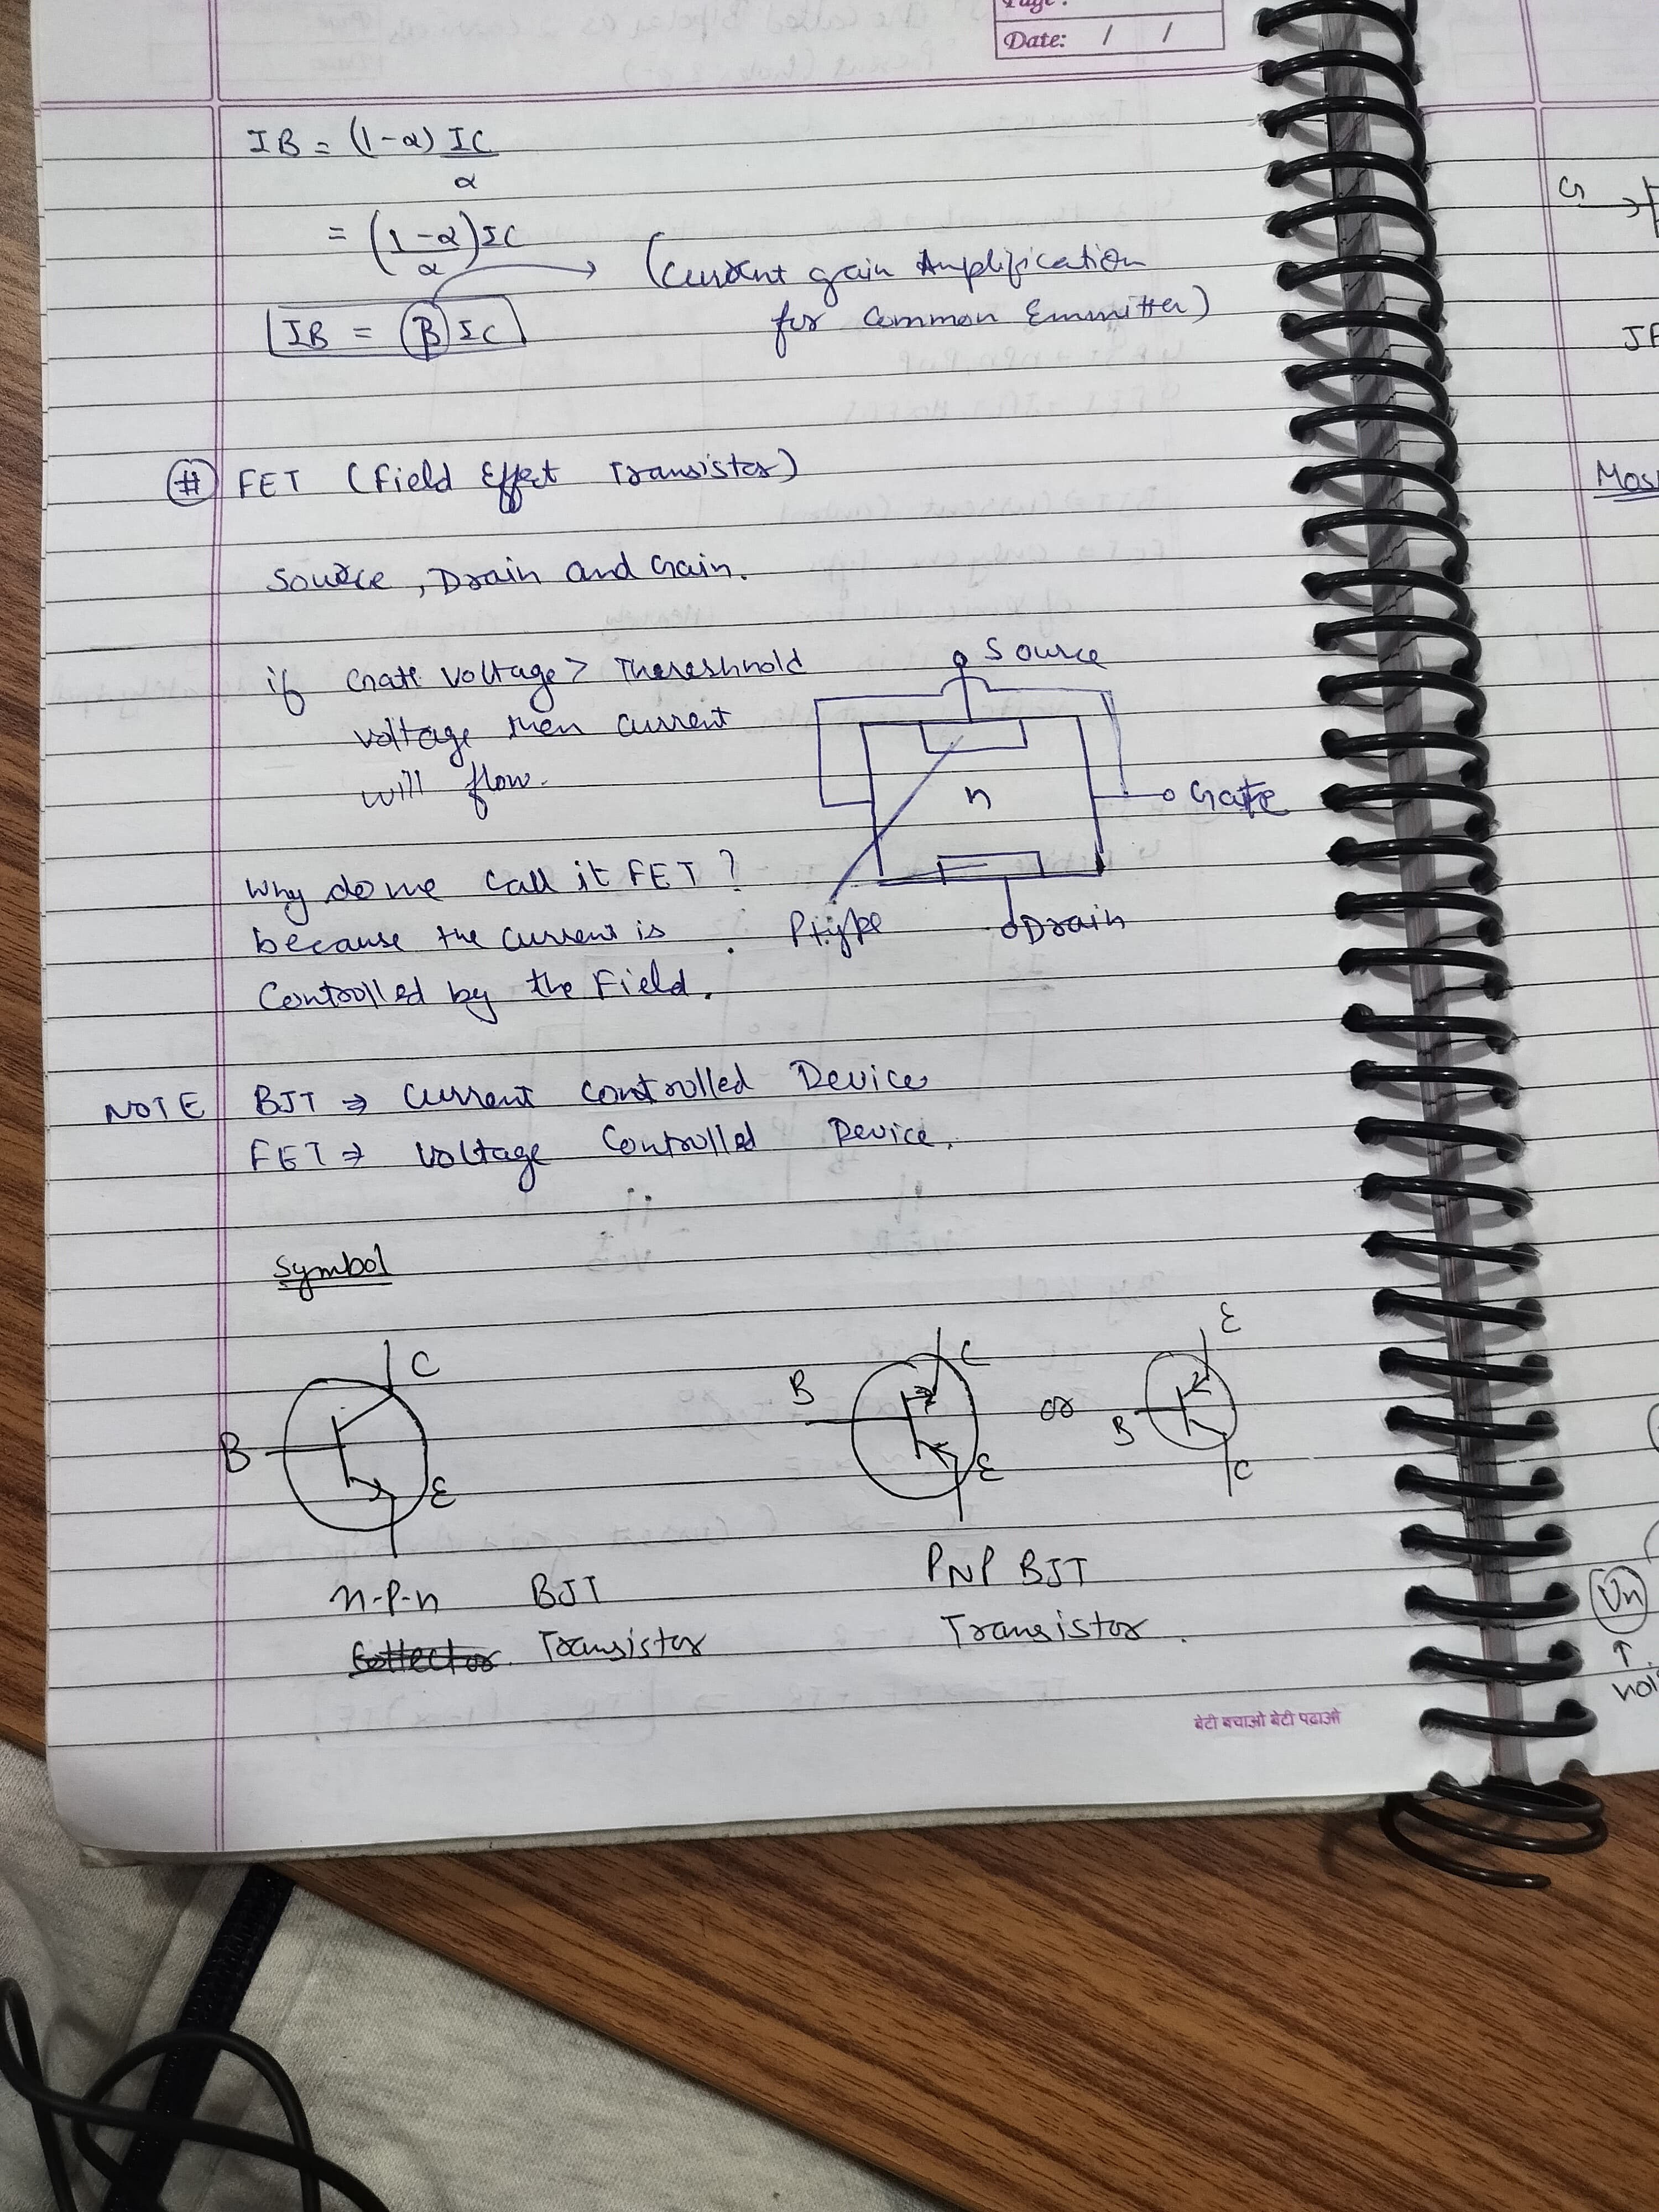 Date: / /
IB = (1-α) IC
α
= (1-α)IC
α
(Current gain Amplification
for Common Emmitter)
IB = β IC
# FET (Field Effect Transistor)
Source, Drain and Gain.
if Gate voltage > Thereshnold
voltage then current
will flow.
Source
n
Gate
P type
Drain
Why do we call it FET?
because the current is
Controlled by the Field.
NOTE BJT ⇒ Current Controlled Device
FET ⇒ Voltage Controlled Device.
Symbol
C
B
E
n-p-n BJT
Collector. Transistor
B
C
E
or
E
B
C
PNP BJT
Transistor.
बेटी बचाओ बेटी पढाओ
G
Vn